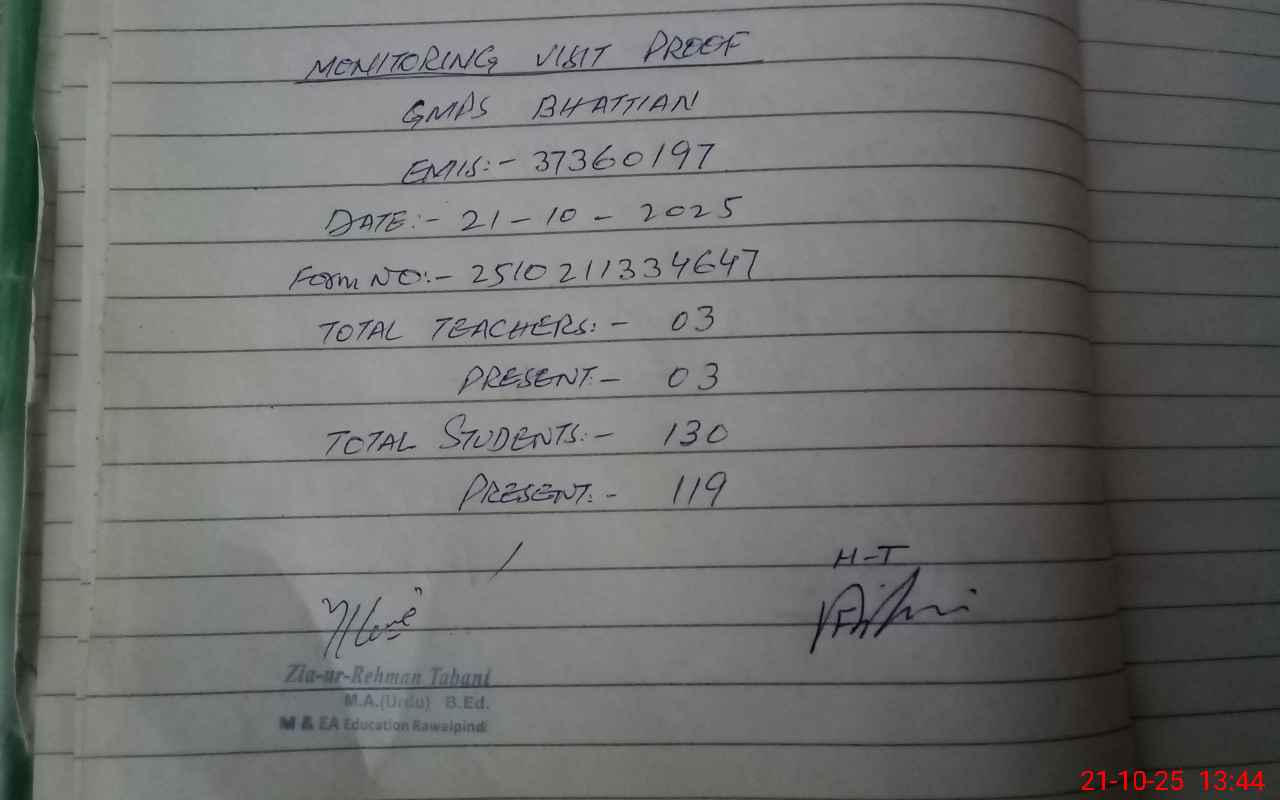 MONITORING VISIT PROOF
GMPS BHATTIAN
EMIS:- 37360197
DATE:- 21-10-2025
Form NO:- 2510211334647
TOTAL TEACHERS:- 03
PRESENT:- 03
TOTAL STUDENTS:- 130
PRESENT:- 119
H-T
Zia-ur-Rehman Tabani
M.A.(Urdu) B.Ed.
M & EA Education Rawalpindi
21-10-25 13:44